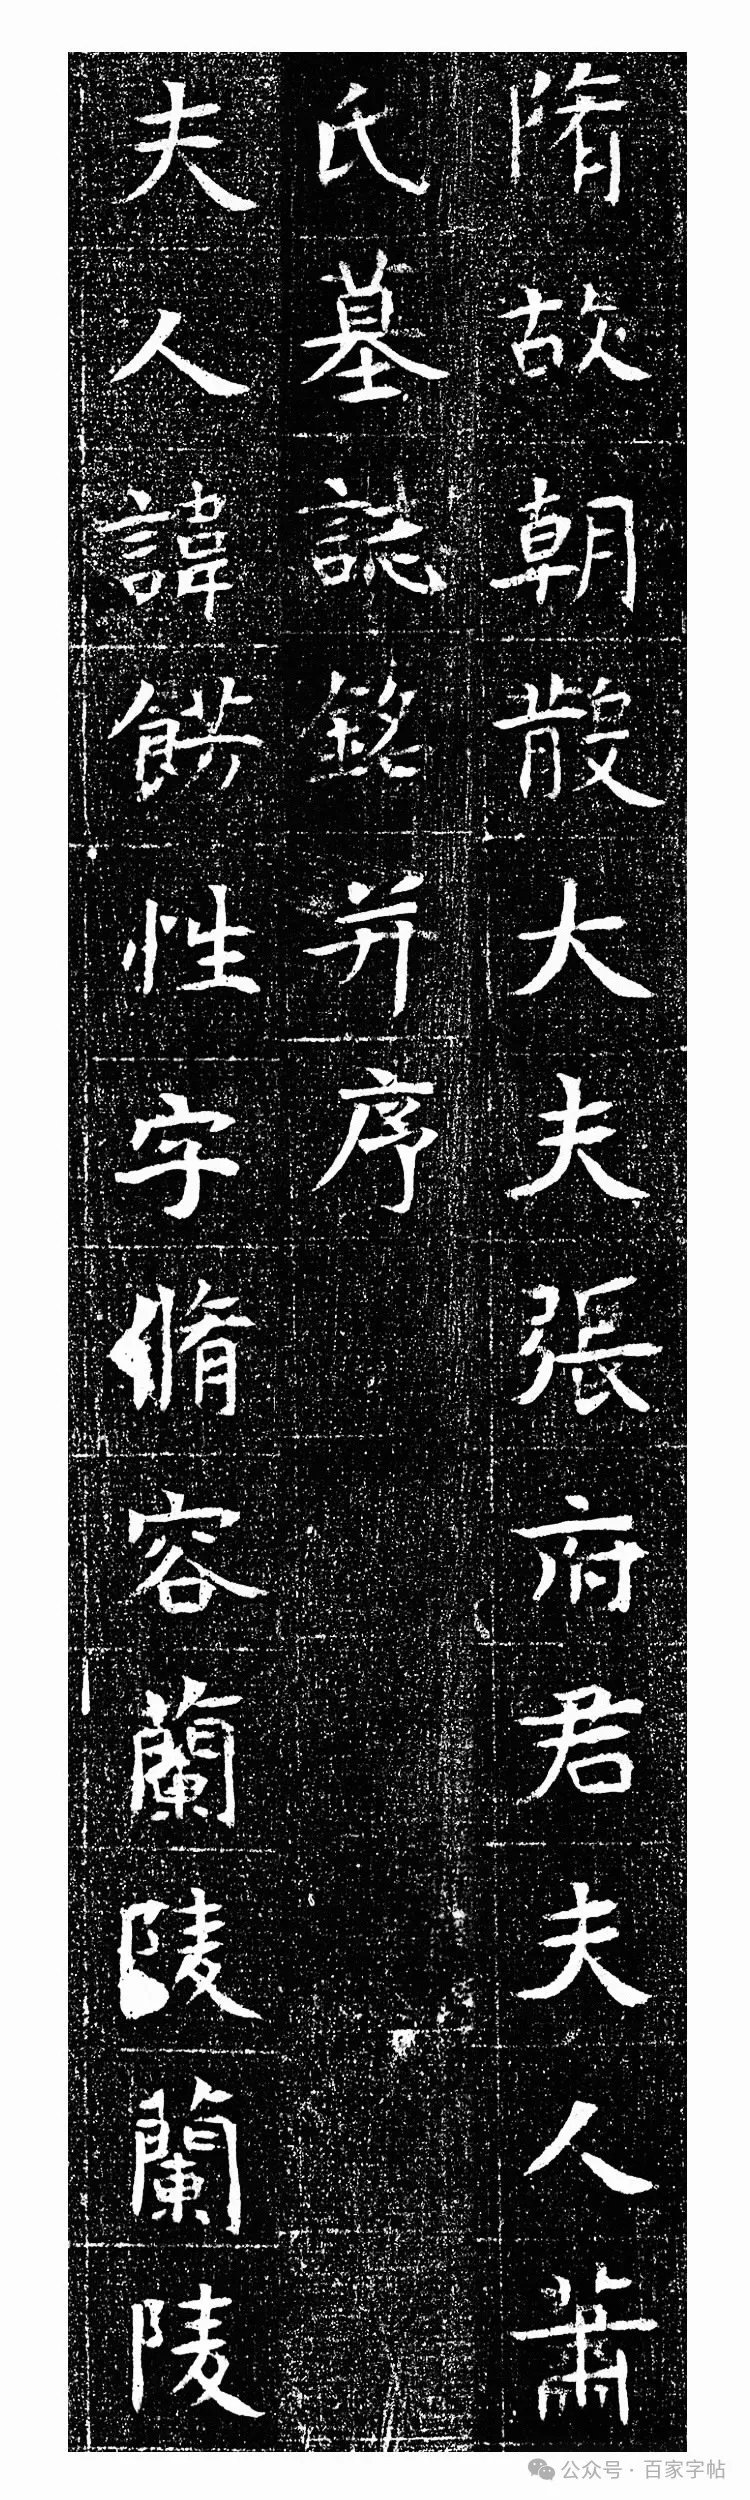 隋故朝散大夫張府君夫人蕭
氏墓誌銘并序
夫人諱餝性字脩容蘭陵蘭陵
公众号·百家字帖